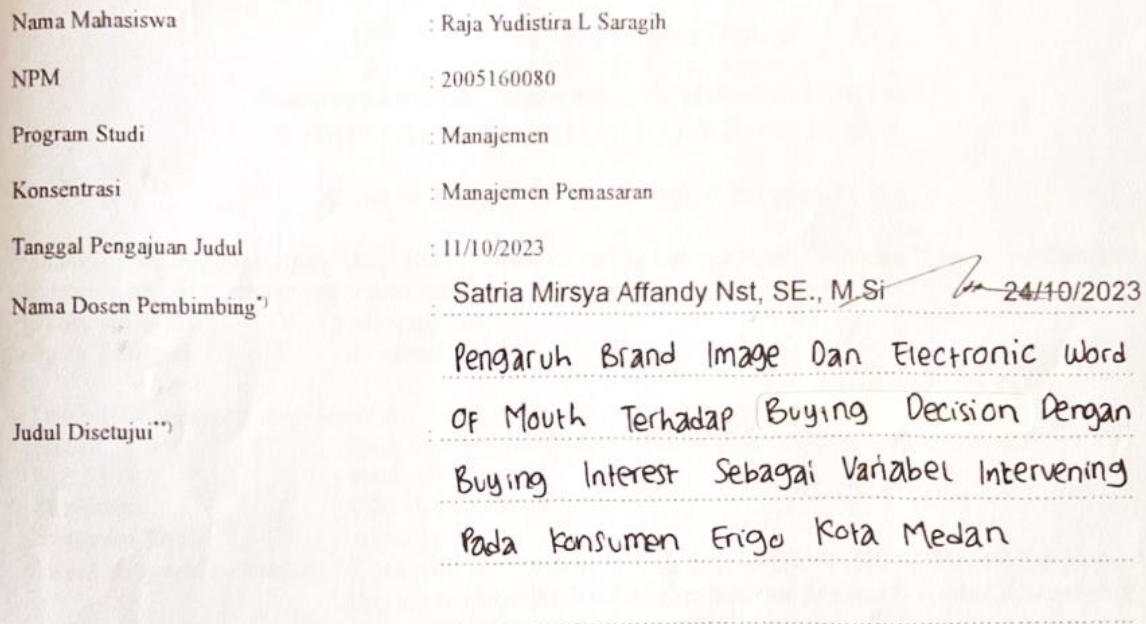 Nama Mahasiswa : Raja Yudistira L Saragih
NPM : 2005160080
Program Studi : Manajemen
Konsentrasi : Manajemen Pemasaran
Tanggal Pengajuan Judul : 11/10/2023
Nama Dosen Pembimbing*) : Satria Mirsya Affandy Nst, SE., M.Si 24/10/2023
Judul Disetujui**) : Pengaruh Brand Image Dan Electronic Word
OF Mouth Terhadap Buying Decision Dengan
Buying Interest Sebagai Variabel Intervening
Pada Konsumen Erigo Kota Medan